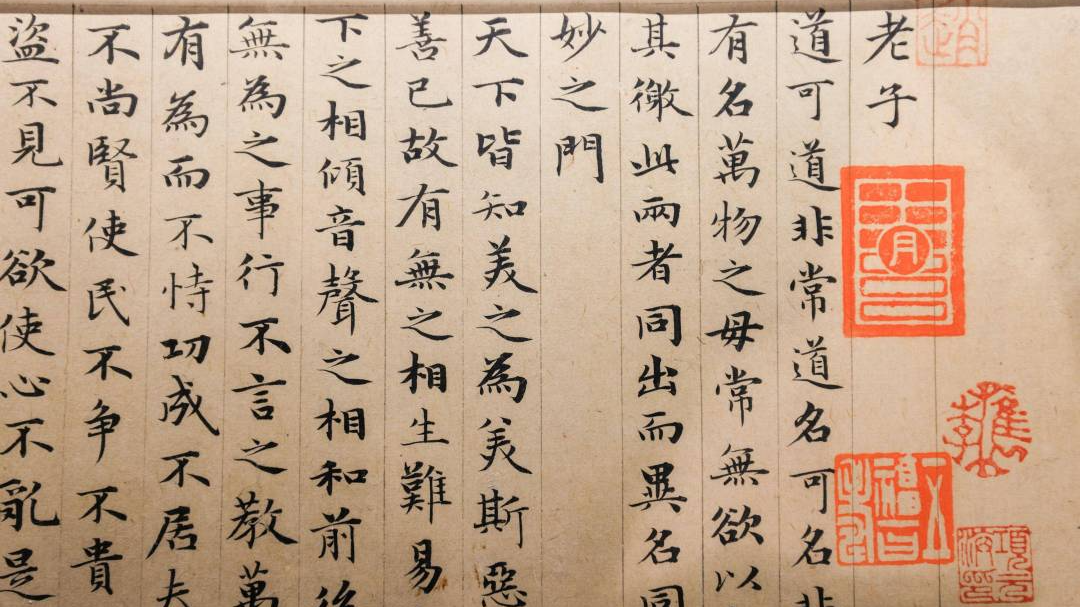 老子
道可道非常道名可名非
有名萬物之母常無欲以
其徼此兩者同出而異名同
妙之門
天下皆知美之為美斯惡
善已故有無之相生難易
下之相傾音聲之相和前後
無為之事行不言之教萬
有為而不恃功成不居夫
不尚賢使民不争不貴
盜不見可欲使心不亂是